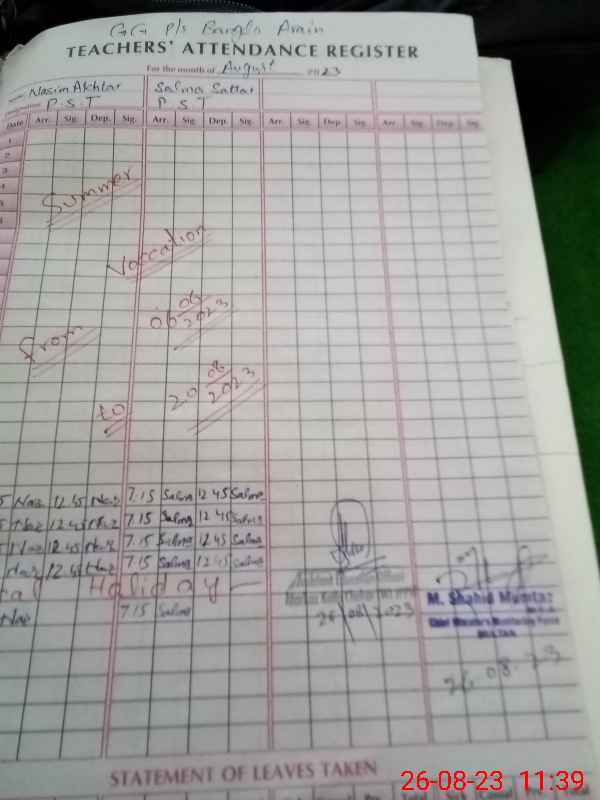 GG P/s Bangla Arain
TEACHERS' ATTENDANCE REGISTER
For the month of August 2023
Nasim Akhtar Salma Sattar
P.S.T P.S.T
Date Arr. Sig. Dep. Sig. Arr. Sig. Dep. Sig. Arr. Sig. Dep. Sig. Arr. Sig. Dep. Sig.
1
2
3
4
5
Summer
Vaccation
06 06/2023
From
20 08/2023
to
5 Naz 12.45 Naz 7.15 Salma 12 45 Salma
5 Naz 12.45 Naz 7.15 Salma 12 45 Salma
Naz 12.45 Naz 7.15 Salma 12 45 Salma
Naz 12.45 Naz 7.15 Salma 12 45 Salma
Haliday
Naz 7 15 Salma
26/08/2023
M. Shahid Mumtaz
Chief Minister's Monitoring Force
MULTAN
26.08.23
STATEMENT OF LEAVES TAKEN
26-08-23 11:39